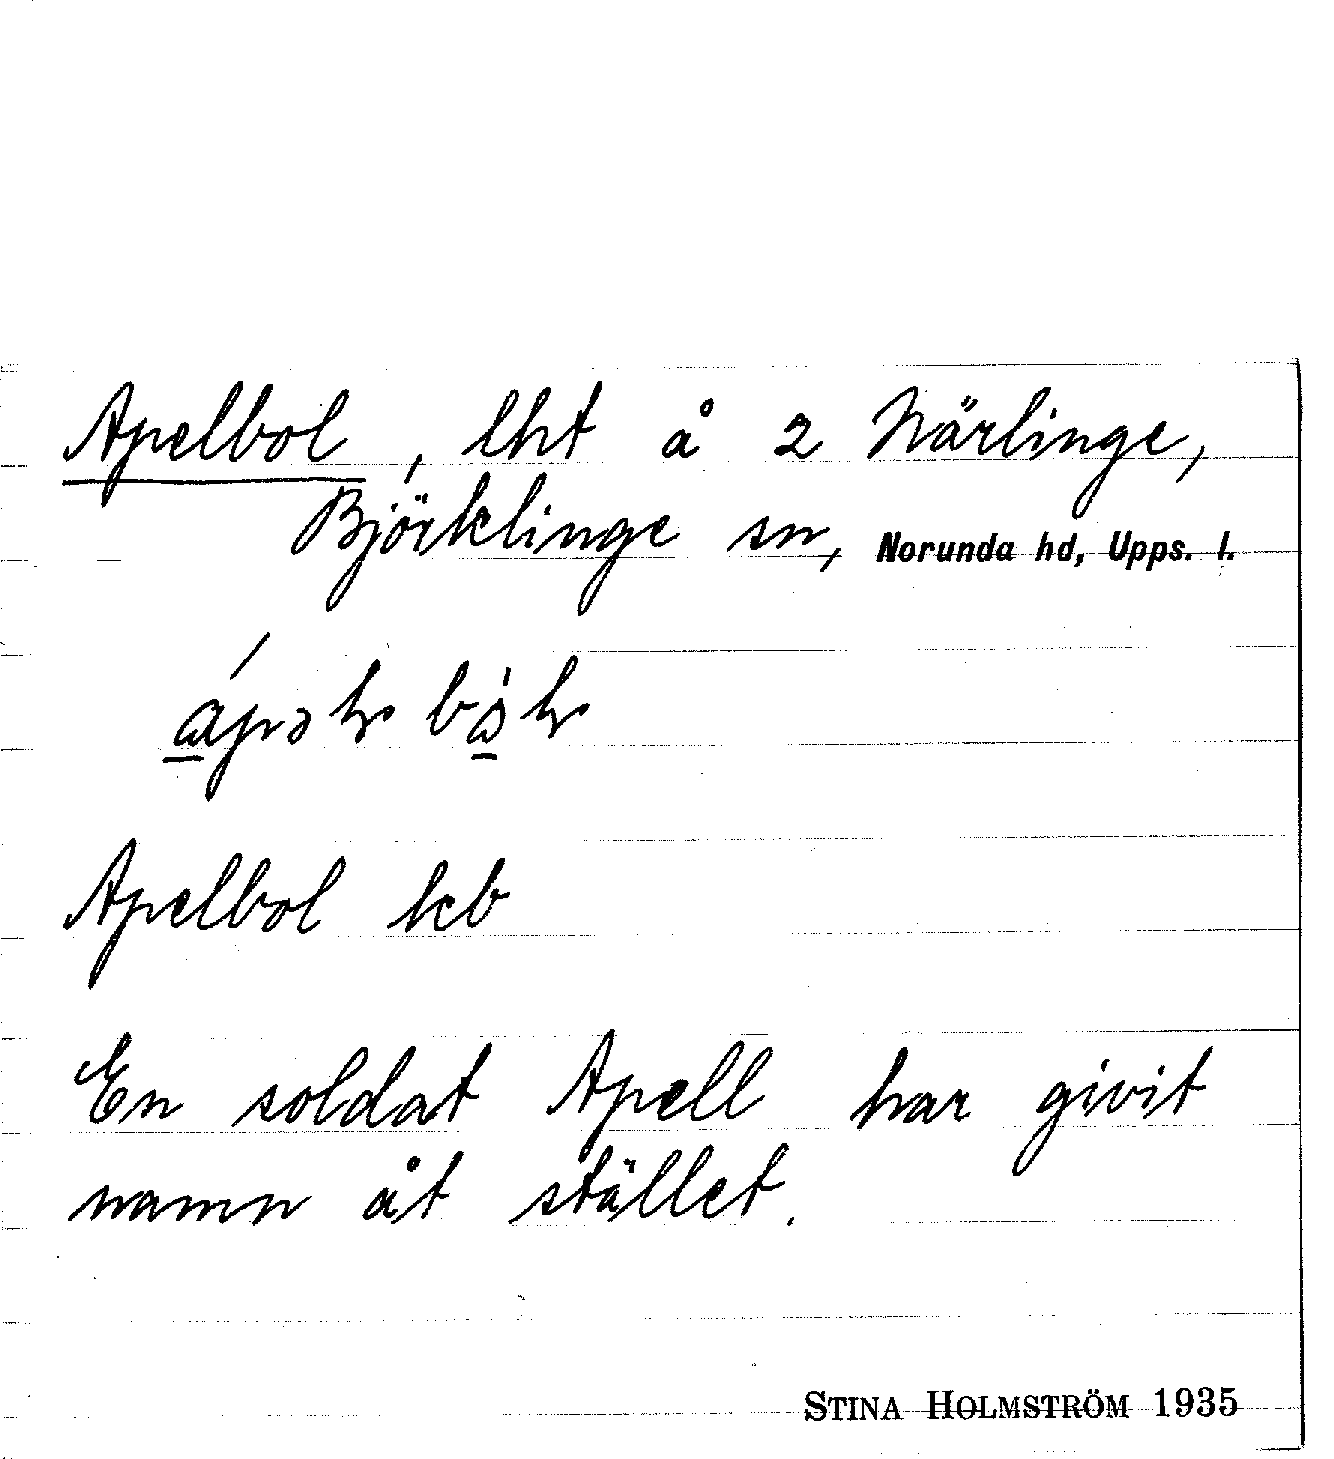 Apelbol, lht å 2 Närlinge,
Björklinge sn, Norunda hd, Upps. l.
Apelbol kb
En soldat Apell har givit
namn åt stället.
STINA HOLMSTRÖM 1935